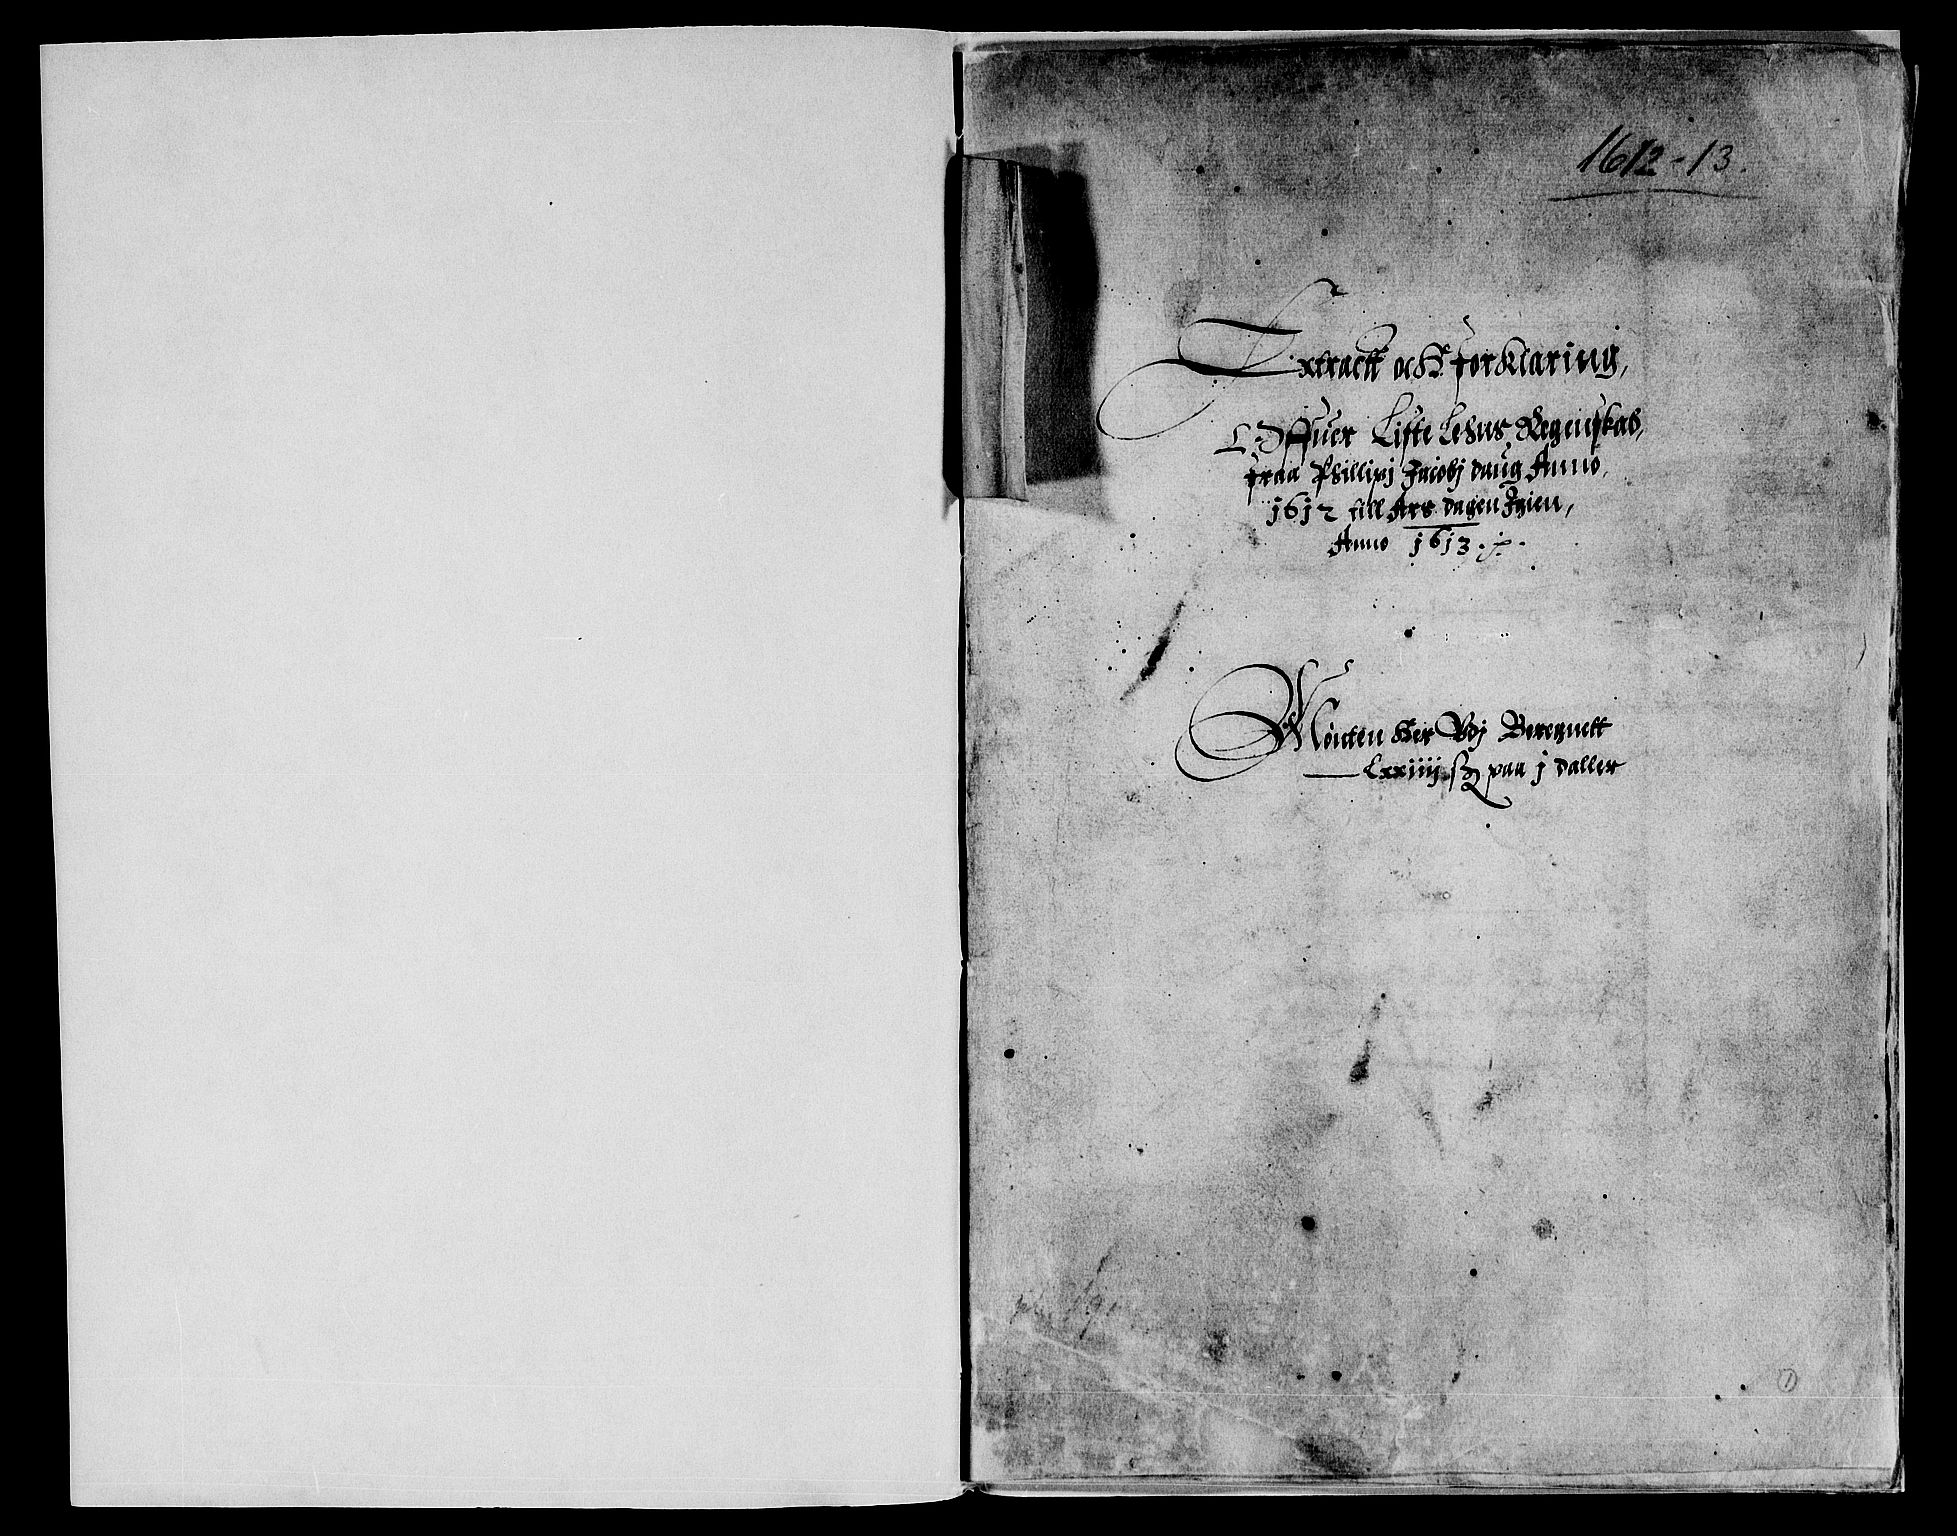 1612-13.
Extractt och forklaring,
Offuer Liste Lehns Regenskab,
fraa Phillipj Jacobj daug Anno,
1612 till Ars dagen Igien,
Anno 1613.
Mònten her Vdj Beregnett
Lxxiiij ſz paa j daller
1